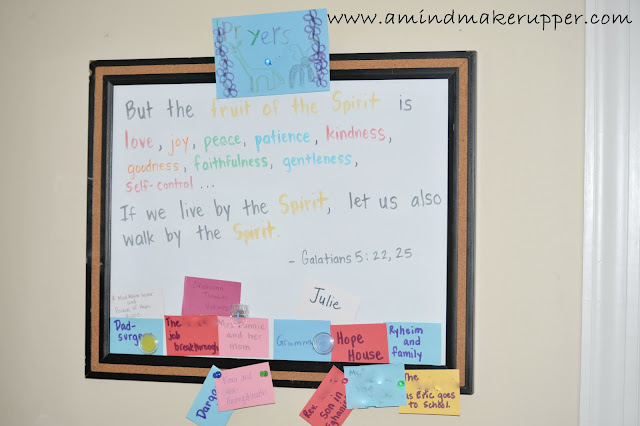 www.amindmakerupper.com
Pryers
But the fruit of the Spirit is
love, joy, peace, patience, kindness,
goodness, faithfulness, gentleness,
self-control ...
If we live by the Spirit, let us also
walk by the Spirit.
- Galatians 5:22, 25
Julie
Dad-
surgery
The
job
breakthrough
and her
mom
Hope
House
Ryheim
and
family
son in
The
Eric goes
to school.